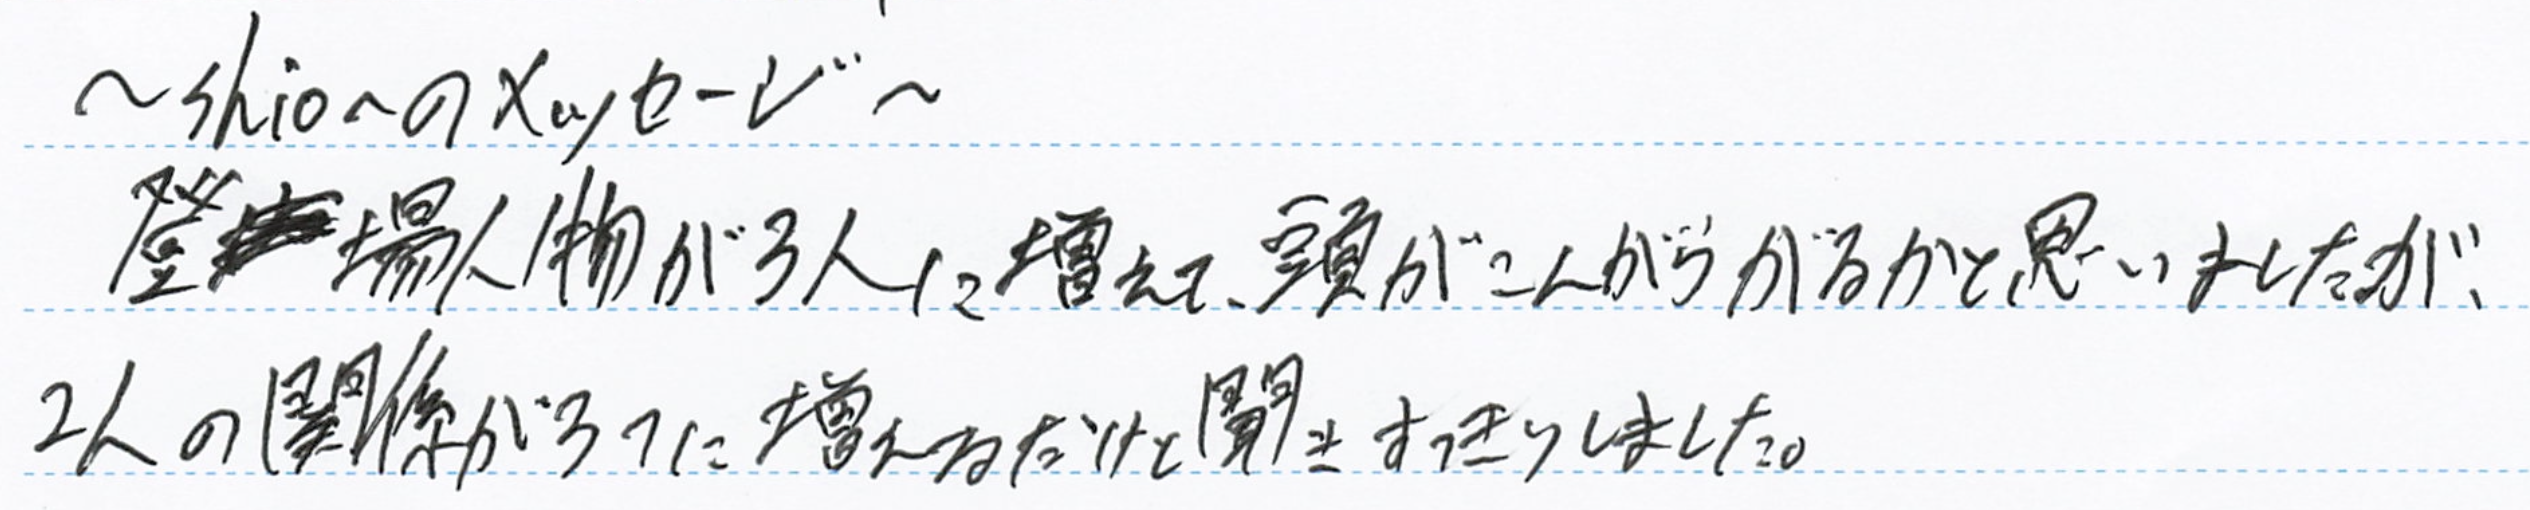 ～shioへのメッセージ～
登場人物が3人に増えて、頭がこんがらがるかと思いましたが、
2人の関係が3つに増えるだけと聞きすっきりしました。